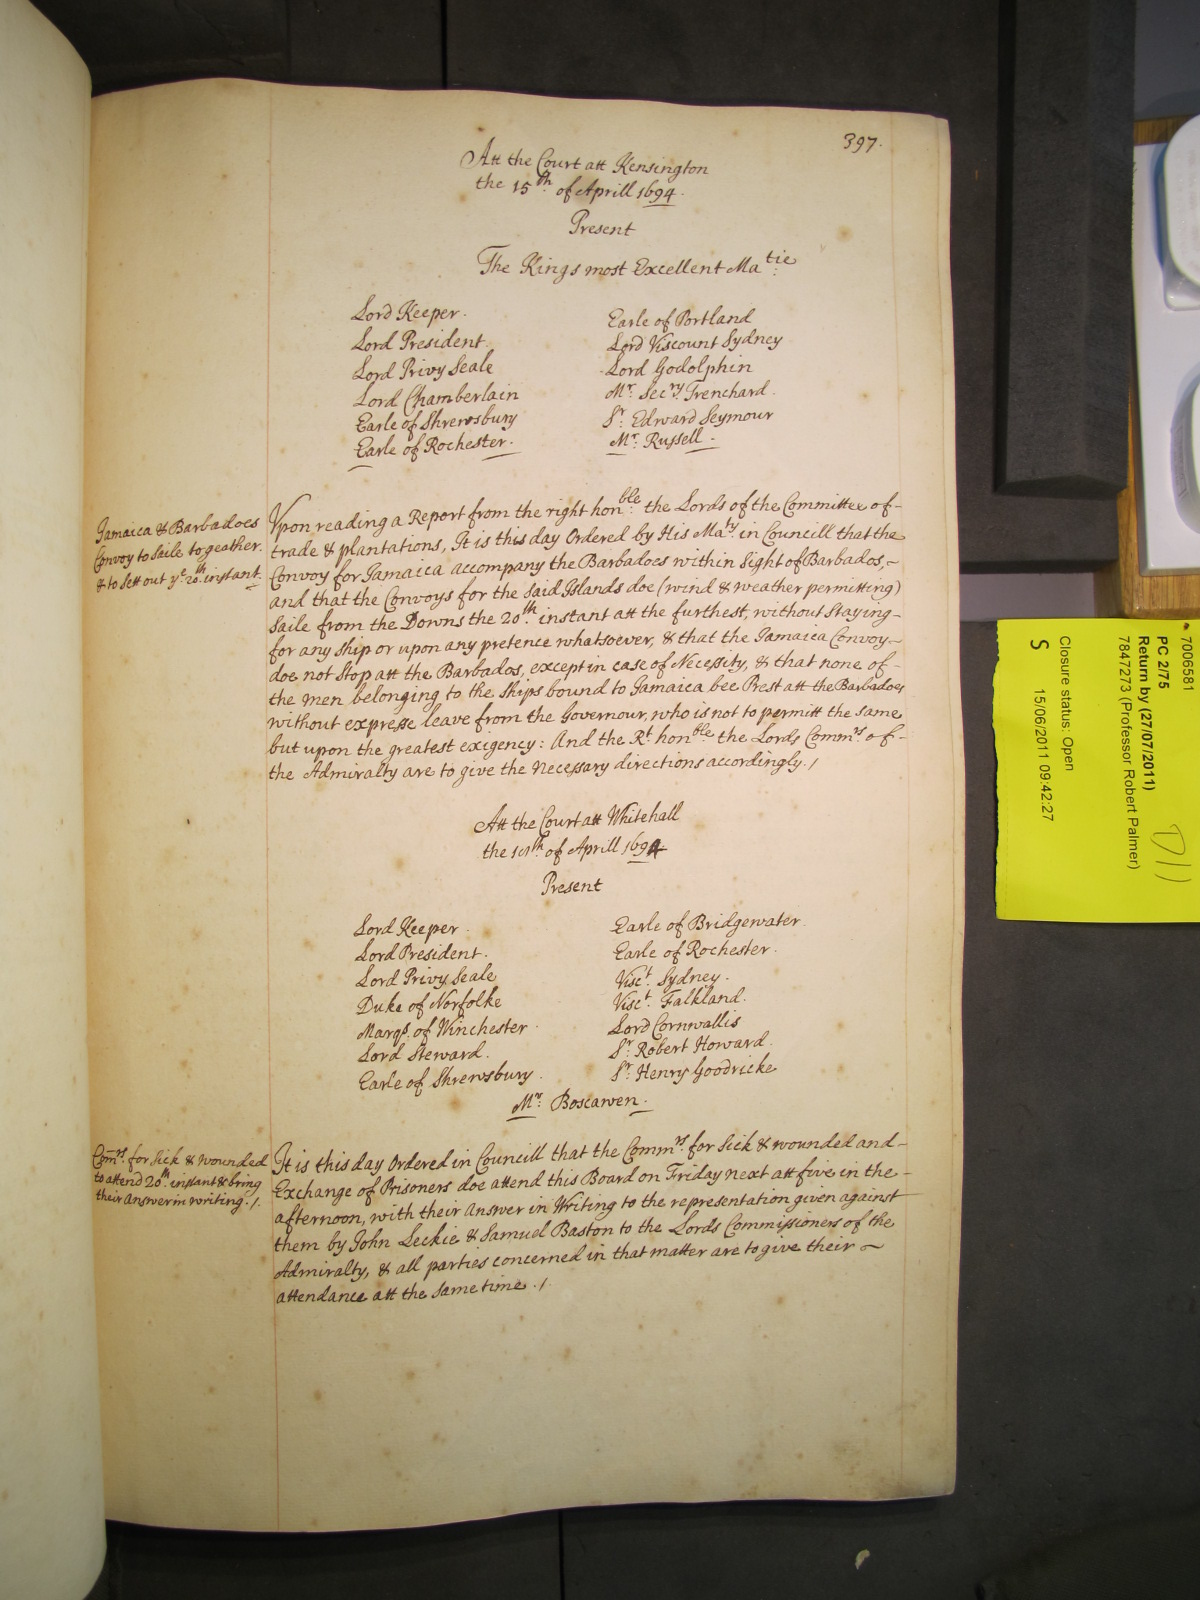 397.
Att the Court att Kensington
the 15th. of Aprill 1694.
Present
The Kings most Excellent Matie
Lord Keeper.
Lord President.
Lord Privy Seale
Lord Chamberlain
Earle of Shrewsbury
Earle of Rochester.
Earle of Portland
Lord Viscount Sydney
Lord Godolphin
Mr. Secry Trenchard.
Sr. Edward Seymour
Mr. Russell.
Jamaica & Barbadoes
Convoy to Saile togeather.
& to Sett out ye 20th. instant.
Vpon reading a Report from the right honble. the Lords of the Committee of
trade & plantations, It is this day Ordered by His Maty. in Councill that the
Convoy for Jamaica accompany the Barbadoes within Sight of Barbados,
and that the Convoys for the said Islands doe (wind & weather permitting)
Saile from the Downs the 20th. instant att the furthest, without Staying
for any Ship or upon any pretence whatsoever, & that the Jamaica Convoy
doe not Stop att the Barbados, except in case of Necessity, & that none of
the men belonging to the Ships bound to Jamaica bee Prest att the Barbadoes
without expresse leave from the Governour, who is not to permitt the same
but upon the greatest exigency: And the Rt honble. the Lords Commrs of
the Admiralty are to give the Necessary directions accordingly. /
Att the Court att Whitehall
the of Aprill 1694
Present
Lord Keeper.
Lord President.
Lord Privy Seale
Duke of Norfolke
Marqs. of Winchester
Lord Steward.
Earle of Shrewsbury.
Earle of Bridgewater
Earle of Rochester.
Visct. Sydney.
Visct. Falkland.
Lord Cornwallis
Sr. Robert Howard.
Sr. Henry Goodricke
Mr. Boscawen.
Comrs. for Sick & wounded
to attend 20th. instant & bring
their Answer in writing. /.
It is this day Ordered in Councill that the Commrs for Sick & wounded and
Exchange of Prisoners doe attend this Board on Friday next att five in the
afternoon, with their Answer in Writing to the representation given against
them by John Leckie & Samuel Baston to the Lords Commissioners of the
Admiralty, & all parties concerned in that matter are to give their
attendance att the same time. /.
7006581
PC 2/75
Return by (27/07/2011)
7847273 (Professor Robert Palmer)
D11
Closure status: Open
S 15/06/2011 09:42:27